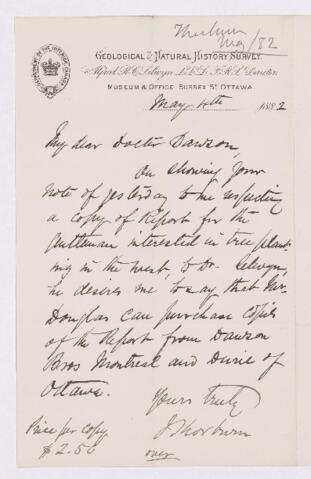 May/82
GEOLOGICAL AND NATURAL HISTORY SURVEY.
Alfred R. C. Selwyn, LL.D., F.R.S., Director.
MUSEUM & OFFICE, SUSSEX ST. OTTAWA.
May 4th 1882
My dear Doctor Dawson,
On showing your
note of yesterday to me respecting
a copy of Report for the
gentleman interested in tree plant-
ing in the west, to Dr. Selwyn,
he desires me to say that Mr.
Douglas can purchase copies
of the Report from Dawson
Bros Montreal and Durie of
Ottawa.
Yours truly
J Thorburn
Price per copy
$2.50
over